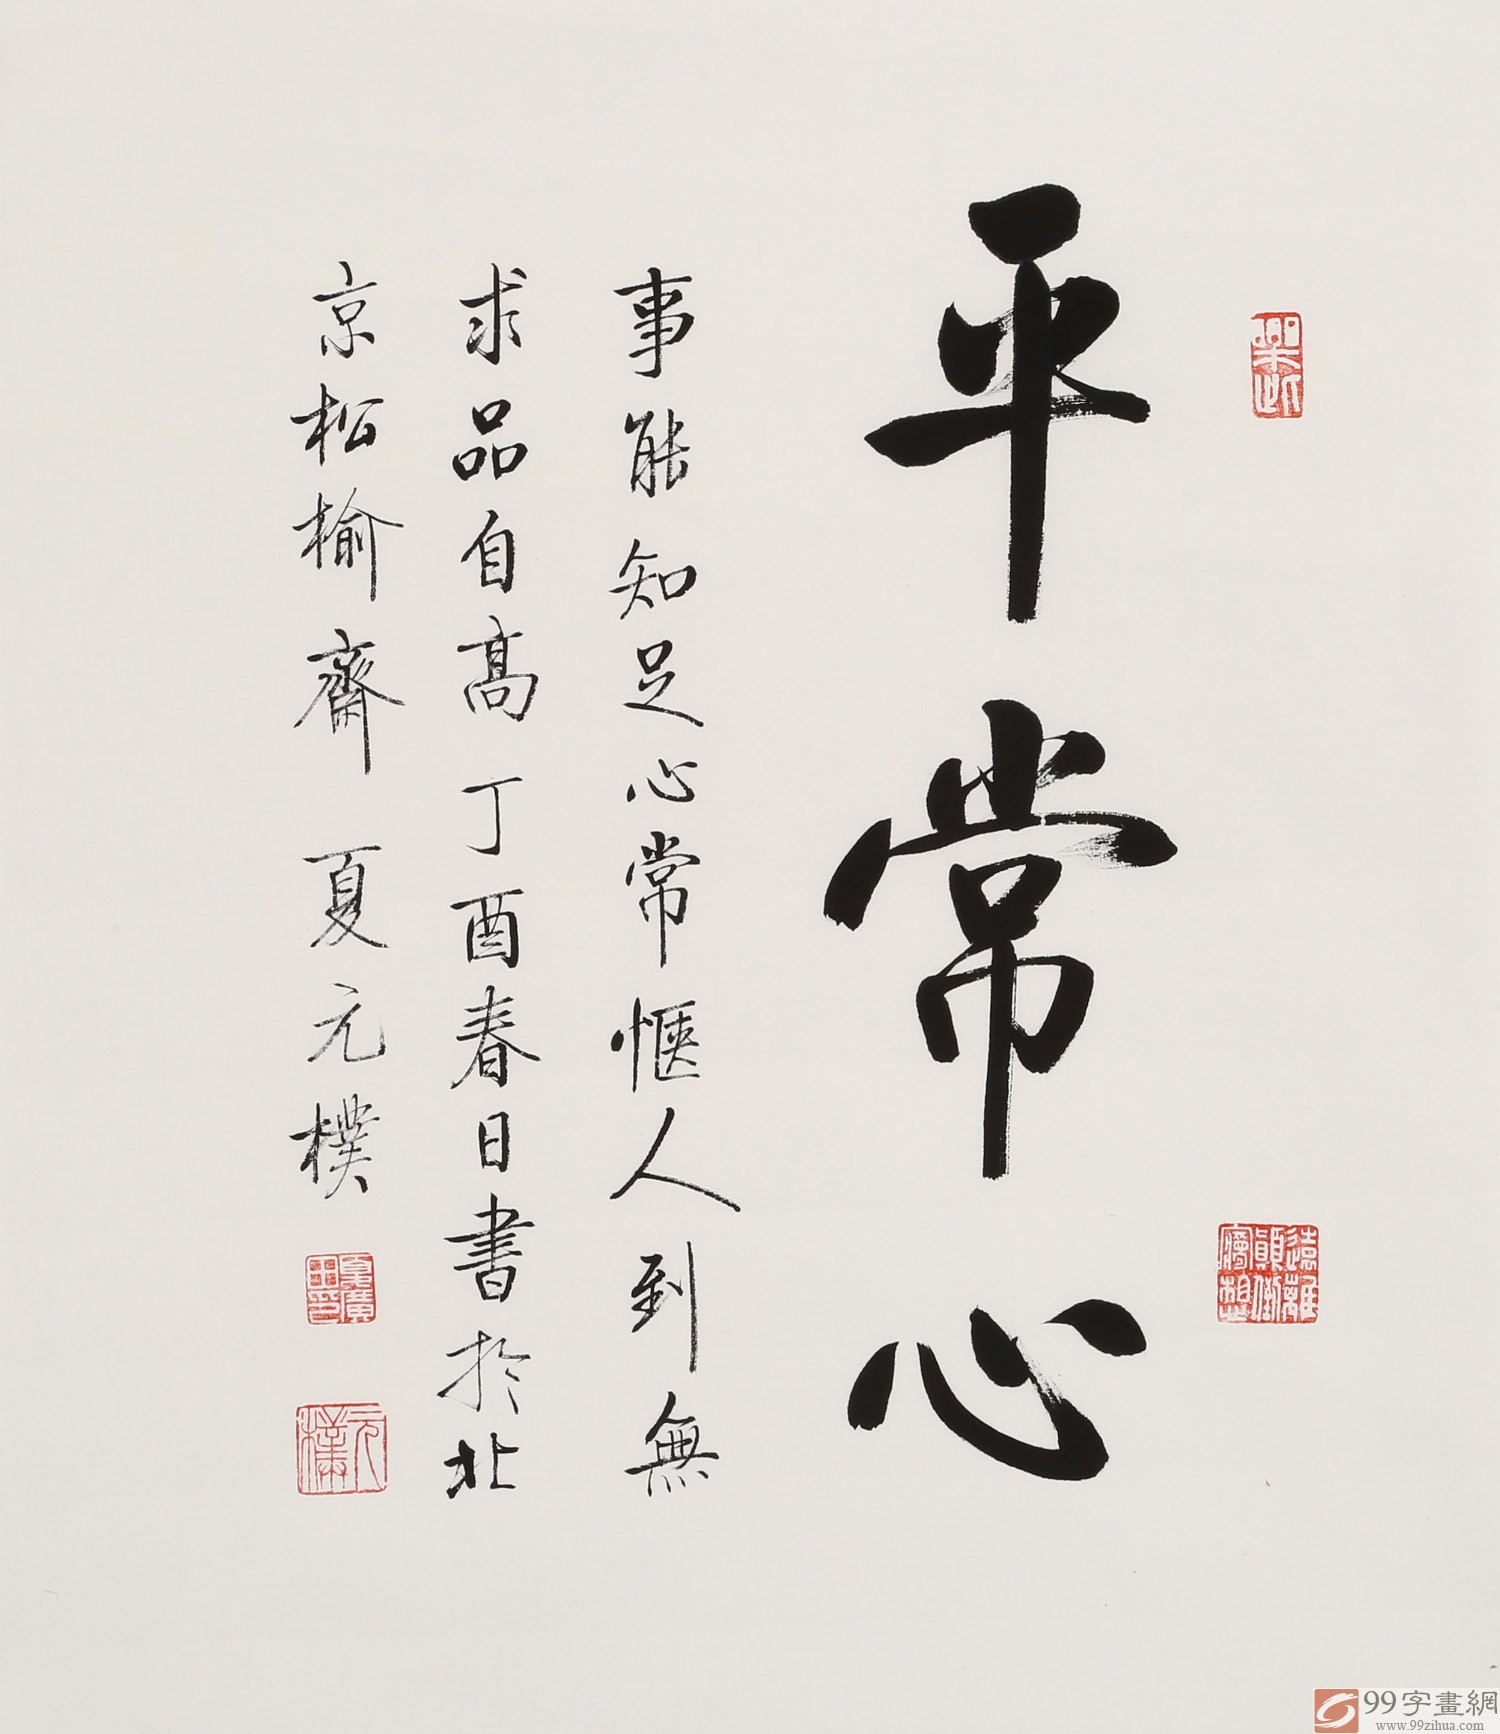 平常心
事能知足心常惬人到無
求品自高丁酉春日書於北
京松榆齋夏元樸
遠離顛倒夢想
夏廣田印
元樸
99字畫網
www.99zihua.com